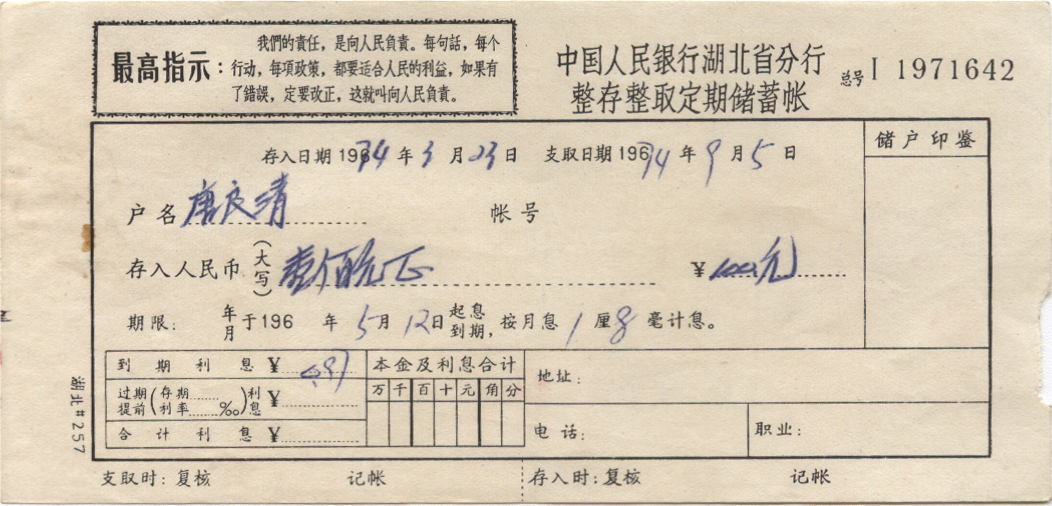 最高指示:
我們的責任，是向人民負責。每句話，每个
行动，每項政策，都要适合人民的利益，如果有
了錯誤，定要改正，这就叫向人民負責。
中国人民银行湖北省分行
整存整取定期储蓄帐
总号 I 1971642
存入日期 19674年3月23日 支取日期 19674年9月5日
储户印鉴
户名 唐良清 帐号
存入人民币(大写) 壹佰元正 ¥100元
期限: 年月于196 年5月12日起息到期，按月息1厘8毫计息。
到期利息 ¥ 0.97
本金及利息合计
万千百十元角分
过期提前(存期利率 ‰)利息 ¥
合计利息 ¥
地址:
电话: 职业:
湖北#257
支取时: 复核 记帐 存入时: 复核 记帐